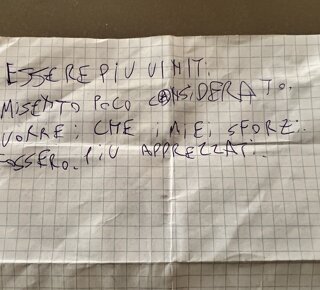 ESSERE PIÙ UNITI.
MI SENTO POCO CONSIDERATO.
VORREI CHE I MIEI SFORZI.
FOSSERO. PIÙ APPREZZATI.